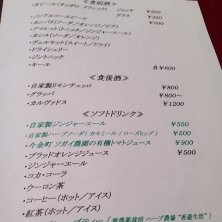 ≪食前酒≫
・カンパリ(ソーダ/オレンジ)
・カシス(ソーダ/オレンジ)
・ヴェルモット(スイート/ドライ)
・ドライシェリー
・ジントニック
・キール
各¥600
≪食後酒≫
・自家製リモンチェッロ ¥800
・グラッパ ¥800～
・カルヴァドス ¥1200
≪ソフトドリンク≫
・自家製ジンジャーエール ¥550
・自家製ハーブソーダ(カモミール/ローズヒップ) ¥500
・今金町 ソガイ農園の有機トマトジュース ¥900
・ブラッドオレンジジュース ¥500
・ジンジャーエール
・コカ・コーラ
・ウーロン茶
・コーヒー(ホット/アイス)
・紅茶(ホット/アイス)